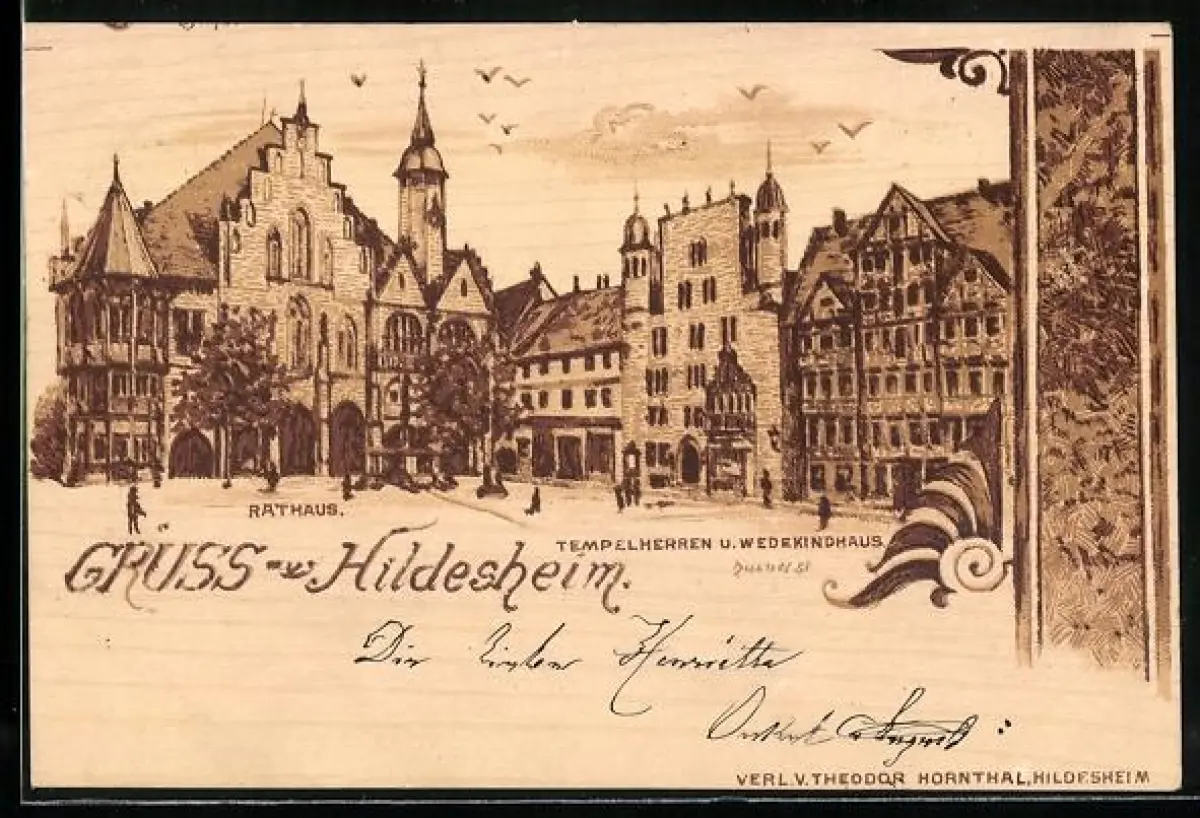 RATHAUS.
TEMPELHERREN U. WEDEKINDHAUS
GRUSS aus Hildesheim.
Der lieben Henriette
Onkel August
VERL. V. THEODOR HORNTHAL, HILDESHEIM